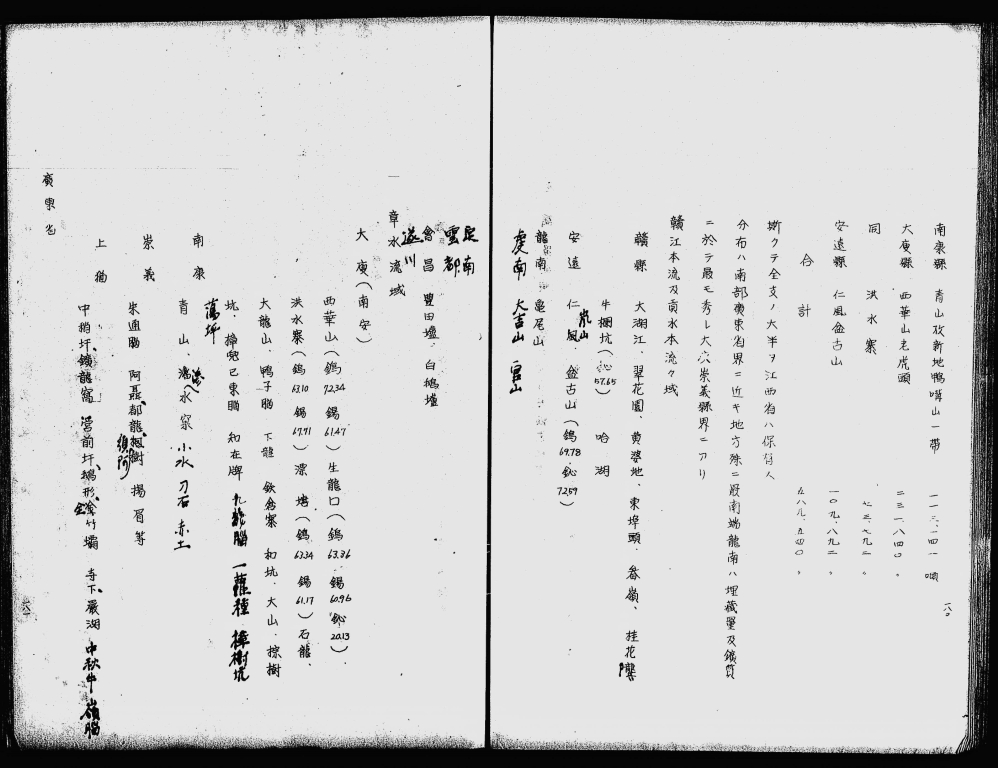 南康縣　青山及新地鴨嘴山一帶　一一三、一四一 噸
大庾縣　西華山老虎頭　二三一、八四〇 〃
同　洪水寨　七三、七九二 〃
安遠縣　仁風盆古山　一〇九、八九二 〃
合計　五八九、五四〇 〃
斯クテ全支ノ大半ヲ江西省ハ保有ス
分布ハ南部廣東省界ニ近キ地方殊ニ最南端龍南ハ埋藏量及鑛質
ニ於テ最モ秀レ大穴崇義縣界ニアリ
贛江本流及貢水本流々域
贛縣　大湖江、翠花園、黄婆地、東埠頭、畚嶺、桂花
牛棚坑(鈊57.65)　哈湖
安遠　仁風、嵐山 盆古山(鎢69.78 鈊72.59)
龍南　龜尾山
虔南　大吉山　官山
定南
雩都
會昌　豐田墟、白鵝墟
遂川
章水流域
大庾(南安)
西華山(鎢72.34 錫61.47)生龍口(鎢63.36 錫60.96 鈊20.13)、
洪水寨(鎢63.10 錫67.71)漂塘(鎢63.34 錫61.17)石龍、
大龍山、鴨子腦　下龍　飲倉寨　和坑、大山、棕樹
坑、 東腦　知在牌　九龍腦　一蘿種　樟樹坑
蕩坪
南康　青山、 水寨　小水　刀石　赤土
崇義　朱通腦　阿聶都龍 樹　揚眉等
上猶　中稍圩鑛龍窩　營前圩鵝形金竹壩　寺下嚴湖　中秋牛嶺腦
廣東省
一八〇